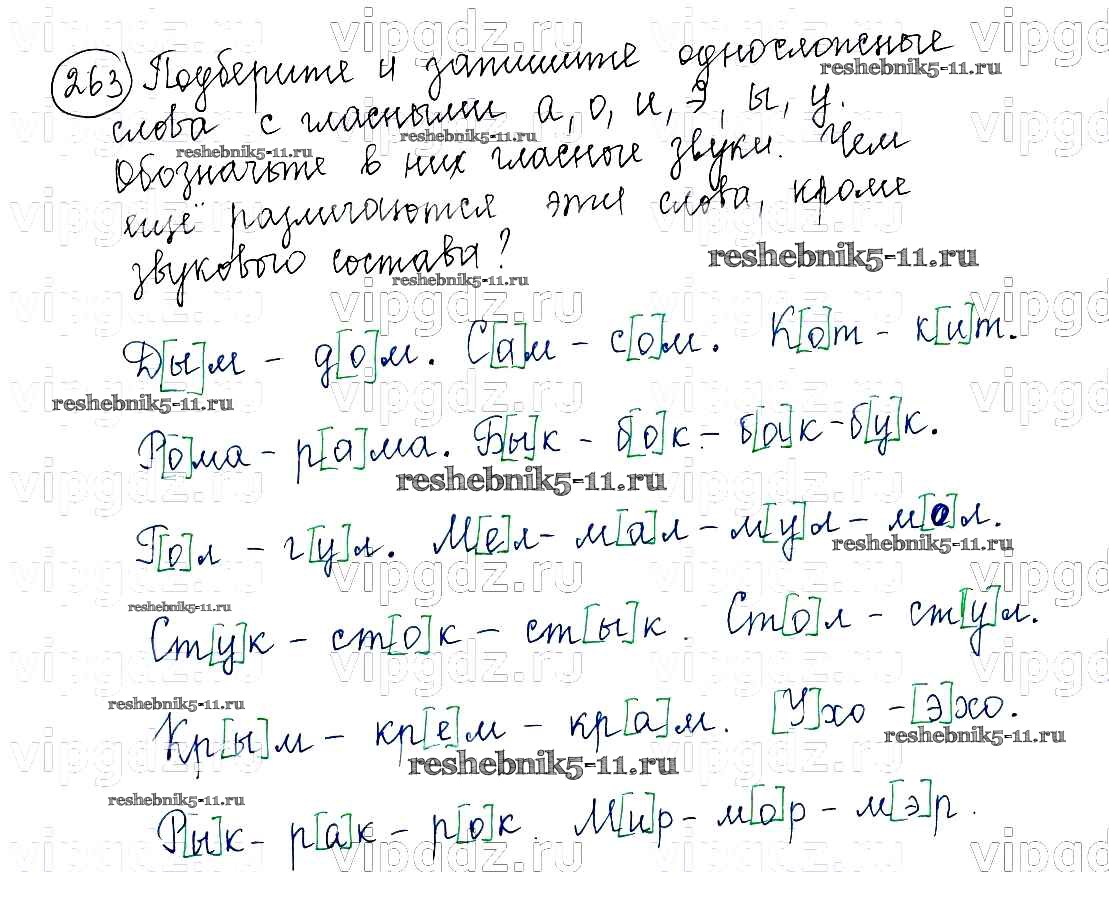 263 Подберите и запишите односложные
слова с гласными а, о, и, э, ы, у.
Обозначьте в них гласные звуки. Чем
ещё различаются эти слова, кроме
звукового состава?
Д[ы]м - д[о]м. С[а]м - с[о]м. К[о]т - к[и]т.
Р[о]ма - р[а]ма. Б[ы]к - б[о]к - б[а]к - б[у]к.
Г[о]л - г[у]л. М[е]л - м[а]л - м[у]л - м[о]л.
Ст[у]к - ст[о]к - ст[ы]к. Ст[о]л - ст[у]л.
Кр[ы]м - кр[е]м - кр[а]м. [У]хо - [э]хо.
Р[ы]к - р[а]к - р[о]к. М[и]р - м[о]р - м[э]р.